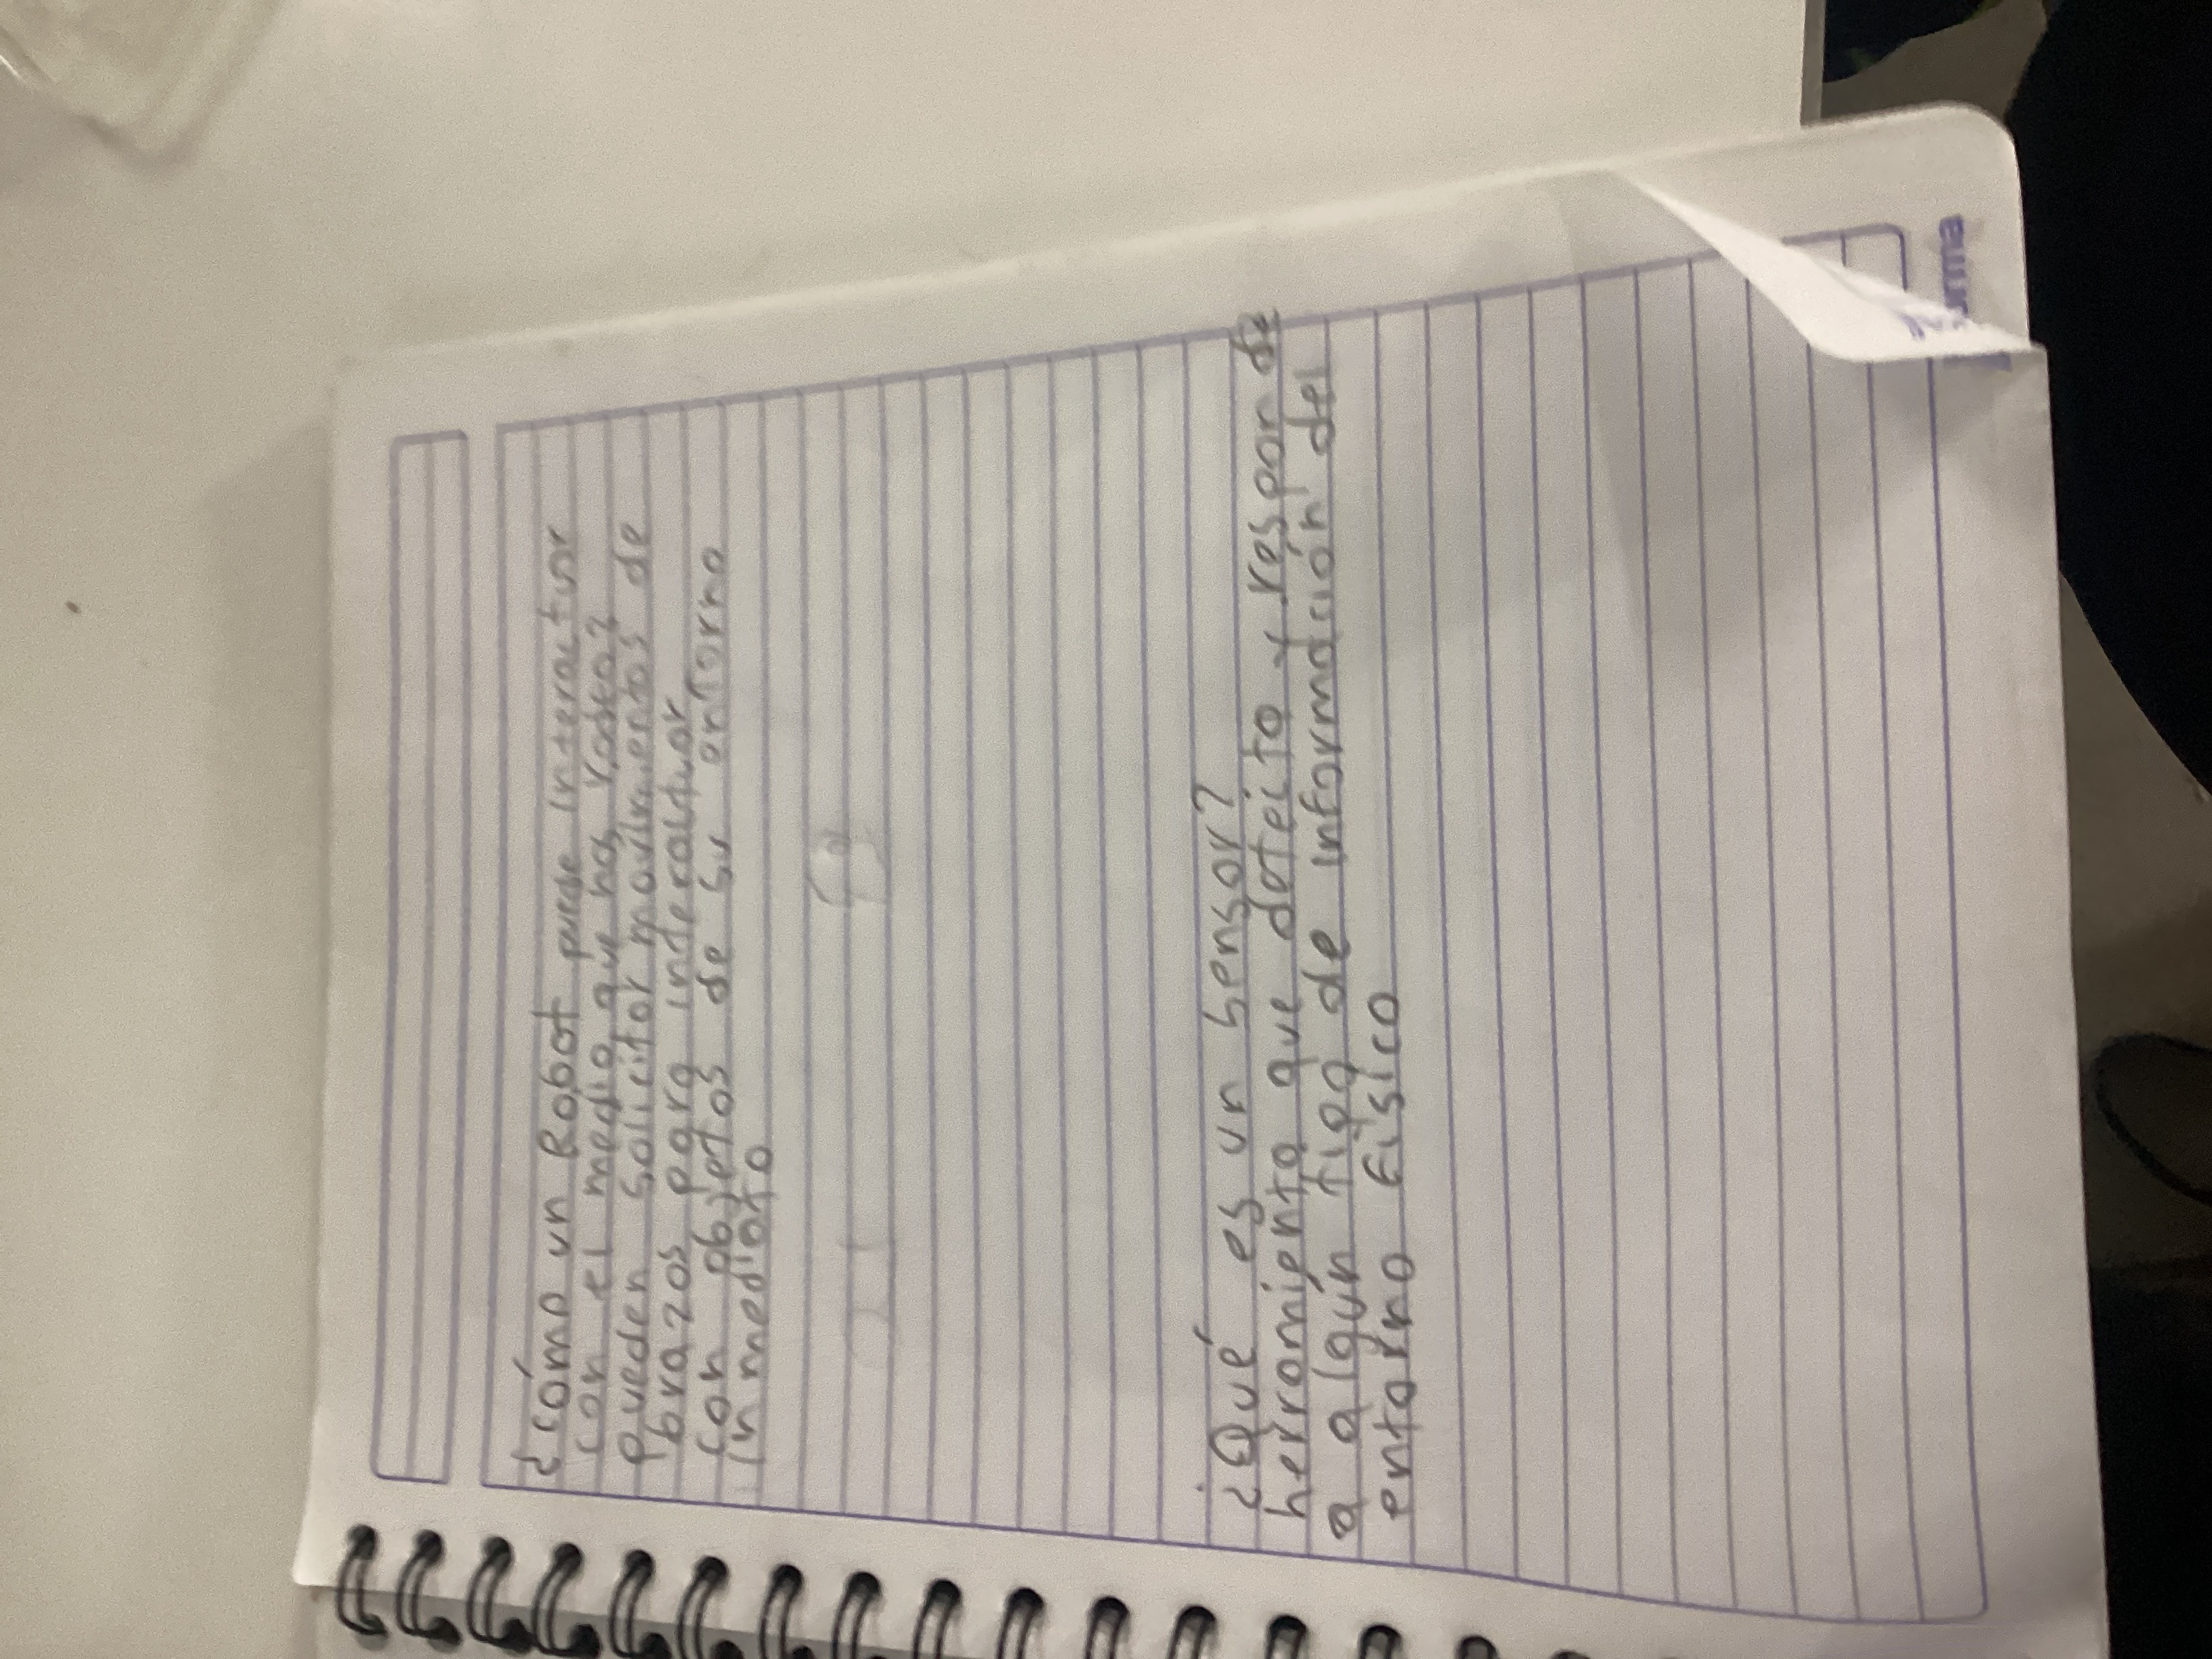 ¿cómo un Robot puede interactuar
con el medio que ha rodea?
pueden solicitar movimientos de
brazos para inderactuar
con objetos de su entorno
inmediato
¿Qué es un sensor?
herramienta que detecta y responde
a algún tipo de información del
entorno físico